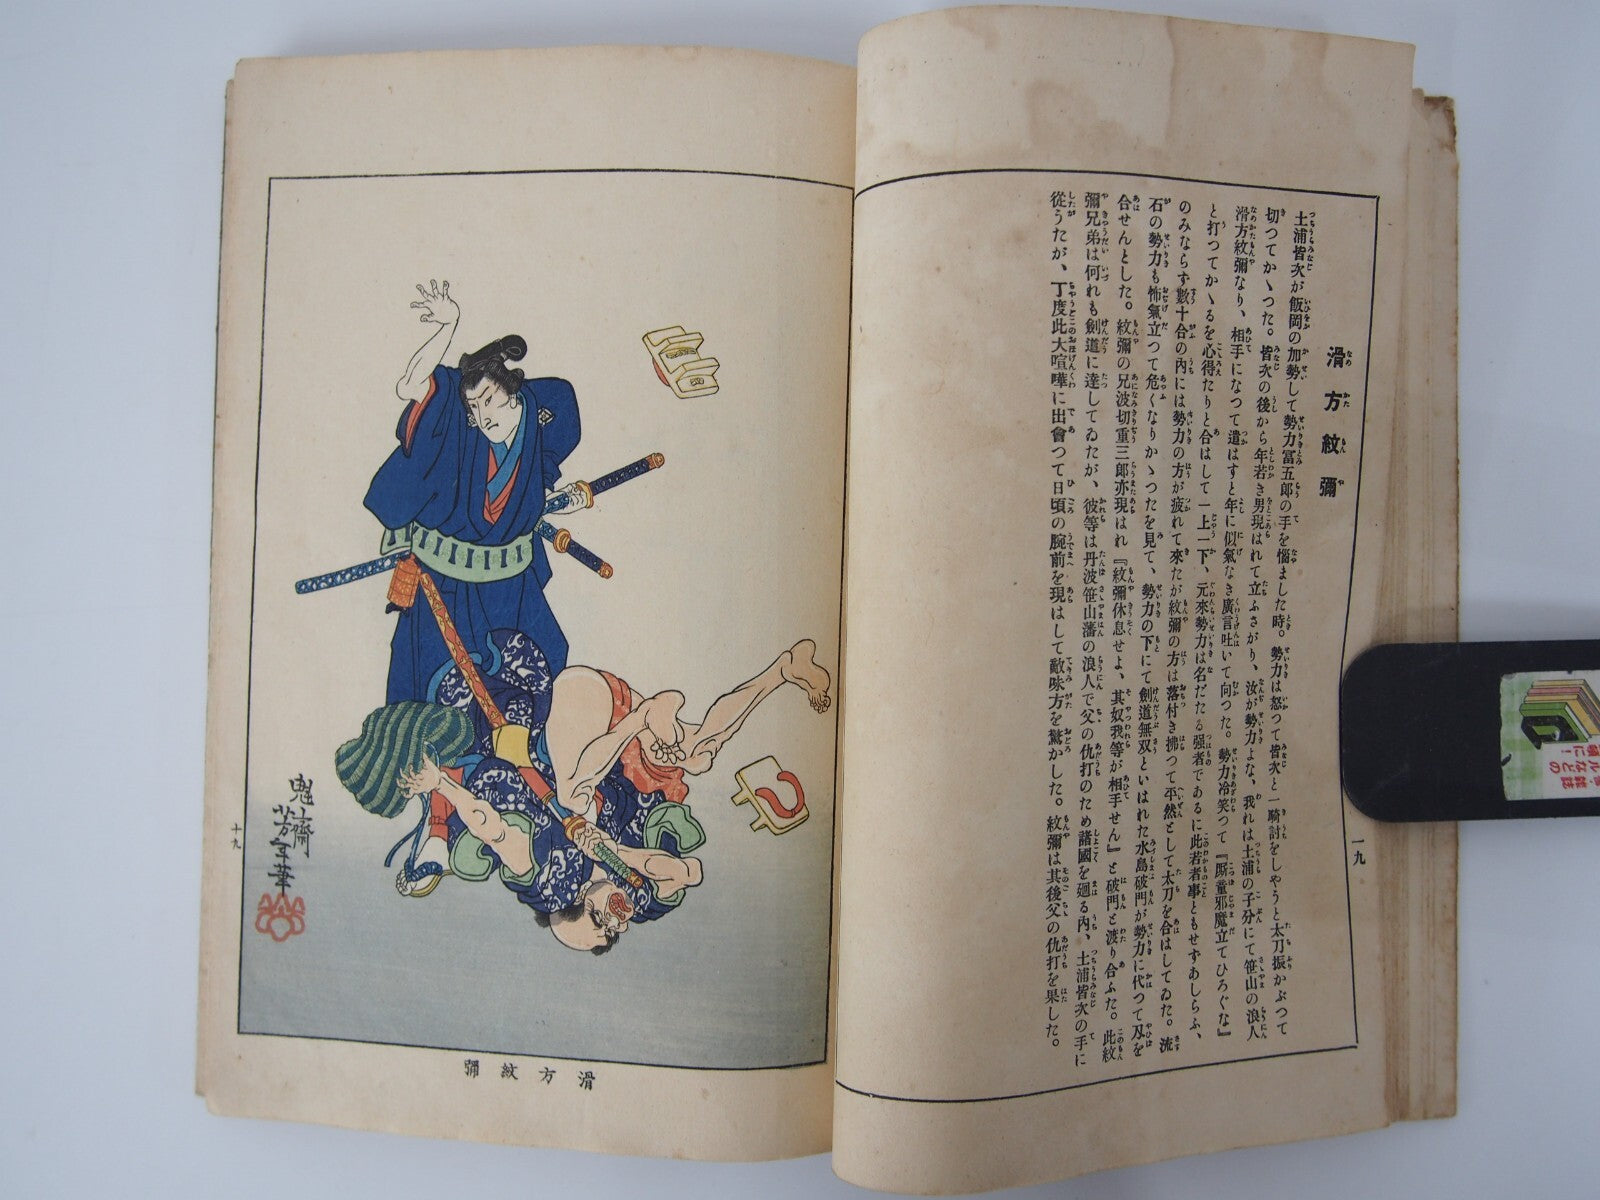 滑方紋彌
土浦皆次が飯岡の加勢して勢力冨五郎の手を惱ました時。勢力は怒つて皆次と一騎討をしやうと太刀振かぶつて
切つてかゝつた。皆次の後から年若き男現はれて立ふさがり、汝が勢力よな、我れは土浦の子分にて笹山の浪人
滑方紋彌なり、相手になつて遣はすと年に似氣なき廣言吐いて向つた。勢力冷笑つて『厮童邪魔立てひろぐな』
と打つてかゝるを心得たりと合はして一上一下、元來勢力は名だたる强者であるに此若者事ともせずあしらふ、
のみならず數十合の內には勢力の方が疲れて來たが紋彌の方は落付き拂つて平然として太刀を合はしてゐた。流
石の勢力も怖氣立つて危くなりかゝつたを見て、勢力の下にて劍道無双といはれた水島破門が勢力に代つて刄を
合せんとした。紋彌の兄波切重三郎亦現はれ『紋彌休息せよ、其奴我等が相手せん』と破門と渡り合ふた。此紋
彌兄弟は何れも劍道に達してゐたが、彼等は丹波笹山藩の浪人で父の仇打のため諸國を廻る內、土浦皆次の手に
從うたが、丁度此大喧嘩に出會つて日頃の腕前を現はして敵味方を驚かした。紋彌は其後父の仇打を果した。
一九
魁齋
芳年筆
十九
滑方紋彌